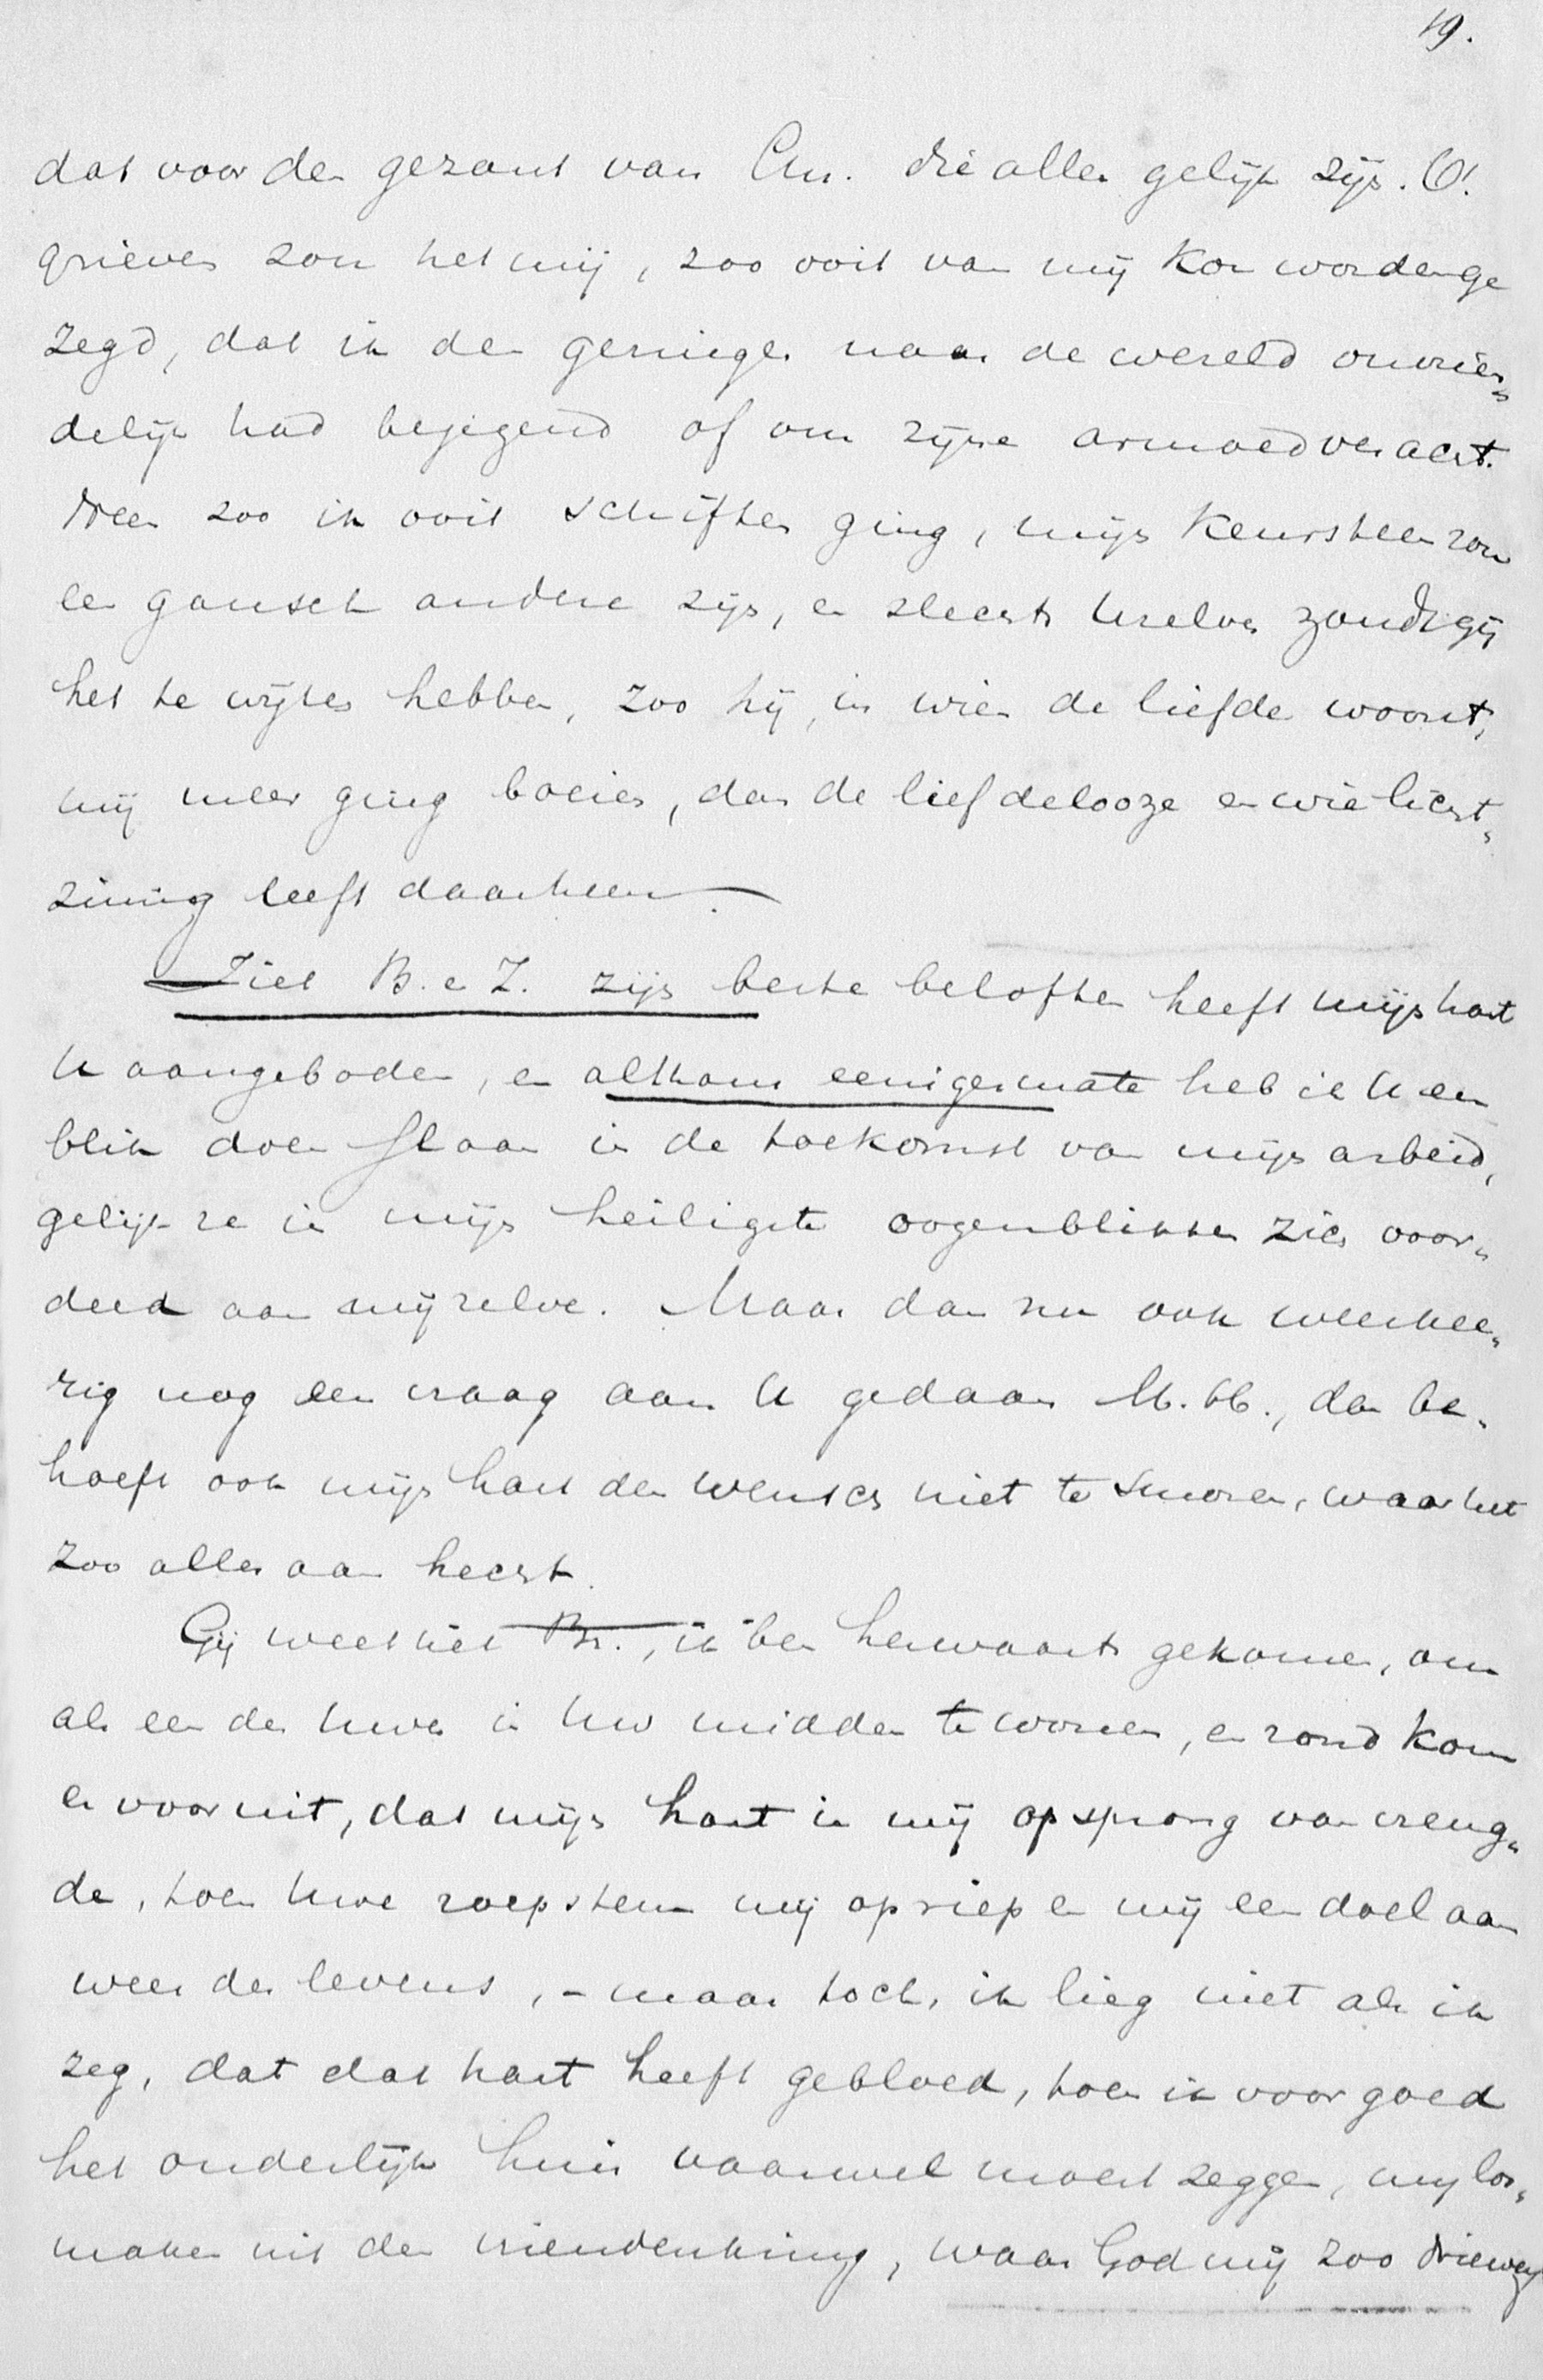 19.
dat voor den gezant van Chr. die allen gelijk zijn. O!
grieven zou het mij, zoo ooit van mij kon worden ge
zegd, dat ik den geringen naar de wereld onvrien„
delijk had bejegend of om zijne armoed veracht.
Neen zoo ik ooit schiften ging, mijn keursteen zou
een gansch andere zijn, en slechts Uzelven zoudt gij
het te wijten hebben, zoo hij, in wien de liefde woont,
mij meer ging boeien, dan de liefdelooze en wie licht„
zinnig leeft daarheen. —
Ziet B. e Z. zijn beste beloften heeft mijn hart
U aangeboden, en althans eenigermate heb ik U een
blik doen slaan in de toekomst van mijn arbeid,
gelijk ze in mijn heiligste oogenblikken zich voor„
deed aan mijzelve. Maar dan nu ook wederkee„
rig nog een vraag aan U gedaan M. H., dan be„
hoeft ook mijn hart den wensch niet te smoren, waar het
zoo alles aan hecht.
Gij weet het Br., ik ben herwaarts gekomen, om
als een der Uwen in Uw midden te wonen, en rond kom
er voor uit, dat mijn hart in mij opsprong van vreug„
de, toen Uwe roepstem mij opriep en mij een doel aan
wees des levens, – maar toch, ik lieg niet als ik
zeg, dat dat hart heeft gebloed, toen ik voor goed
het ouderlijk huis vaarwel moest zeggen, mij los„
maken uit den vriendenkring, waar God mij zoo